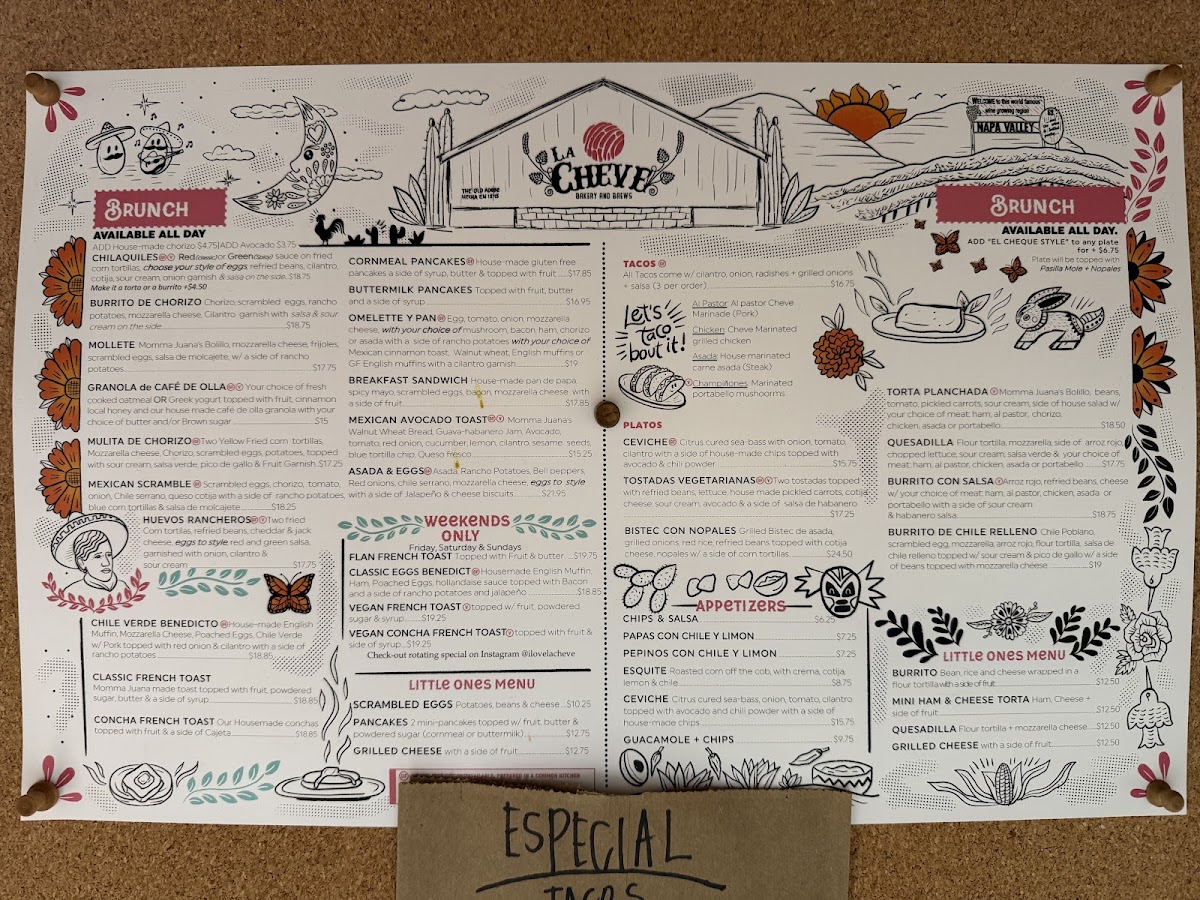 WELCOME to this world famous
wine growing region
NAPA VALLEY
LA
CHEVE
BAKERY AND BREWS
THE OLD ADOBE
HECHA EN 1845
BRUNCH
AVAILABLE ALL DAY
ADD House-made chorizo $4.75|ADD Avocado $3.75
CHILAQUILES Red(classic)or Green(Spicy) sauce on fried
corn tortillas, choose your style of eggs, refried beans, cilantro,
cotija, sour cream, onion garnish & salsa on the side.$18.75
Make it a torta or a burrito +$4.50
BURRITO DE CHORIZO Chorizo, scrambled eggs, rancho
potatoes, mozzarella cheese, Cilantro garnish with salsa & sour
cream on the side $18.75
MOLLETE Momma Juana's Bolillo, mozzarella cheese, frijoles,
scrambled eggs, salsa de molcajete, w/ a side of rancho
potatoes $17.75
GRANOLA de CAFÉ DE OLLA Your choice of fresh
cooked oatmeal OR Greek yogurt topped with fruit, cinnamon
local honey and our house made café de olla granola with your
choice of butter and/or Brown sugar $15
MULITA DE CHORIZO Two Yellow Fried corn tortillas,
Mozzarella cheese, Chorizo, scrambled eggs, potatoes, topped
with sour cream, salsa verde, pico de gallo & Fruit Garnish.$17.25
MEXICAN SCRAMBLE Scrambled eggs, chorizo, tomato,
onion, Chile serrano, queso cotija with a side of rancho potatoes,
blue corn tortillas & salsa de molcajete $18.25
HUEVOS RANCHEROS Two fried
Corn tortillas, refried beans, cheddar & jack
cheese, eggs to style red and green salsa,
garnished with onion, cilantro &
sour cream $17.75
CHILE VERDE BENEDICTO House-made English
Muffin, Mozzarella Cheese, Poached Eggs, Chile Verde
w/ Pork topped with red onion & cilantro with a side of
rancho potatoes $18.85
CLASSIC FRENCH TOAST
Momma Juana made toast topped with fruit, powdered
sugar, butter & a side of syrup $18.85
CONCHA FRENCH TOAST Our Housemade conchas
topped with fruit & a side of Cajeta $18.85
CORNMEAL PANCAKES House-made gluten free
pancakes a side of syrup, butter & topped with fruit $17.85
BUTTERMILK PANCAKES Topped with fruit, butter
and a side of syrup $16.95
OMELETTE Y PAN Egg, tomato, onion, mozzarella
cheese, with your choice of mushroom, bacon, ham, chorizo
or asada with a side of rancho potatoes with your choice of
Mexican cinnamon toast, Walnut wheat, English muffins or
GF English muffins with a cilantro garnish $19
BREAKFAST SANDWICH House-made pan de papa,
spicy mayo, scrambled eggs, bacon, mozzarella cheese with
a side of fruit $17.85
MEXICAN AVOCADO TOAST Momma Juana's
Walnut Wheat Bread, Guava-habanero Jam, Avocado,
tomato, red onion, cucumber, lemon, cilantro, sesame seeds,
blue tortilla chip, Queso fresco $15.25
ASADA & EGGS Asada, Rancho Potatoes, Bell peppers,
Red onions, chile serrano, mozzarella cheese, eggs to style
with a side of Jalapeño & cheese biscuits $21.95
WEEKENDS
ONLY
Friday, Saturday & Sundays
FLAN FRENCH TOAST Topped with Fruit & butter $19.75
CLASSIC EGGS BENEDICT Housemade English Muffin,
Ham, Poached Eggs, hollandaise sauce topped with Bacon
and a side of rancho potatoes and jalapeño $18.85
VEGAN FRENCH TOAST topped w/ fruit, powdered
sugar & syrup $19.25
VEGAN CONCHA FRENCH TOAST topped with fruit &
side of syrup $19.25
Check-out rotating special on Instagram @ilovelacheve
LITTLE ONES MENU
SCRAMBLED EGGS Potatoes, beans & cheese $10.25
PANCAKES 2 mini-pancakes topped w/ fruit, butter &
powdered sugar (cornmeal or buttermilk) $12.75
GRILLED CHEESE with a side of fruit $12.75
TACOS
All Tacos come w/ cilantro, onion, radishes + grilled onions
+ salsa (3 per order) $16.75
Let's
taco
'bout it!
Al Pastor: Al pastor Cheve
Marinade (Pork)
Chicken: Cheve Marinated
grilled chicken
Asada: House marinated
carne asada (Steak)
Champiñones: Marinated
portabello mushoorms
PLATOS
CEVICHE Citrus cured sea-bass with onion, tomato,
cilantro with a side of house-made chips topped with
avocado & chili powder $15.75
TOSTADAS VEGETARIANAS Two tostadas topped
with refried beans, lettuce, house made pickled carrots, cotija
cheese, sour cream, avocado & a side of salsa de habanero
$17.25
BISTEC CON NOPALES Grilled Bistec de asada,
grilled onions, red rice, refried beans topped with cotija
cheese, nopales w/ a side of corn tortillas $24.50
APPETIZERS
CHIPS & SALSA $6.25
PAPAS CON CHILE Y LIMON $7.25
PEPINOS CON CHILE Y LIMON $7.25
ESQUITE Roasted corn off the cob, with crema, cotija,
lemon & chile $8.75
CEVICHE Citrus cured sea-bass, onion, tomato, cilantro
topped with avocado and chili powder with a side of
house-made chips $15.75
GUACAMOLE + CHIPS $9.75
BRUNCH
AVAILABLE ALL DAY.
ADD "EL CHEQUE STYLE" to any plate
for + $6.75
Plate will be topped with
Pasilla Mole + Nopales
TORTA PLANCHADA Momma Juana's Bolillo, beans,
tomato, pickled carrots, sour cream, side of house salad w/
your choice of meat: ham, al pastor, chorizo,
chicken, asada or portabello $18.50
QUESADILLA Flour tortilla, mozzarella, side of arroz rojo,
chopped lettuce, sour cream, salsa verde & your choice of
meat: ham, al pastor, chicken, asada or portabello $17.75
BURRITO CON SALSA Arroz rojo, refried beans, cheese
w/ your choice of meat: ham, al pastor, chicken, asada or
portabello with a side of sour cream
& habanero salsa $18.75
BURRITO DE CHILE RELLENO Chile Poblano,
scrambled egg, mozzarella, arroz rojo, flour tortilla, salsa de
chile relleno topped w/ sour cream & pico de gallo w/ a side
of beans topped with mozzarella cheese $19
LITTLE ONES MENU
BURRITO Bean, rice and cheese wrapped in a
flour tortilla with a side of fruit $12.50
MINI HAM & CHEESE TORTA Ham, Cheese +
side of fruit $12.50
QUESADILLA Flour tortilla + mozzarella cheese $12.50
GRILLED CHEESE with a side of fruit $12.50
ESPECIAL
TACOS